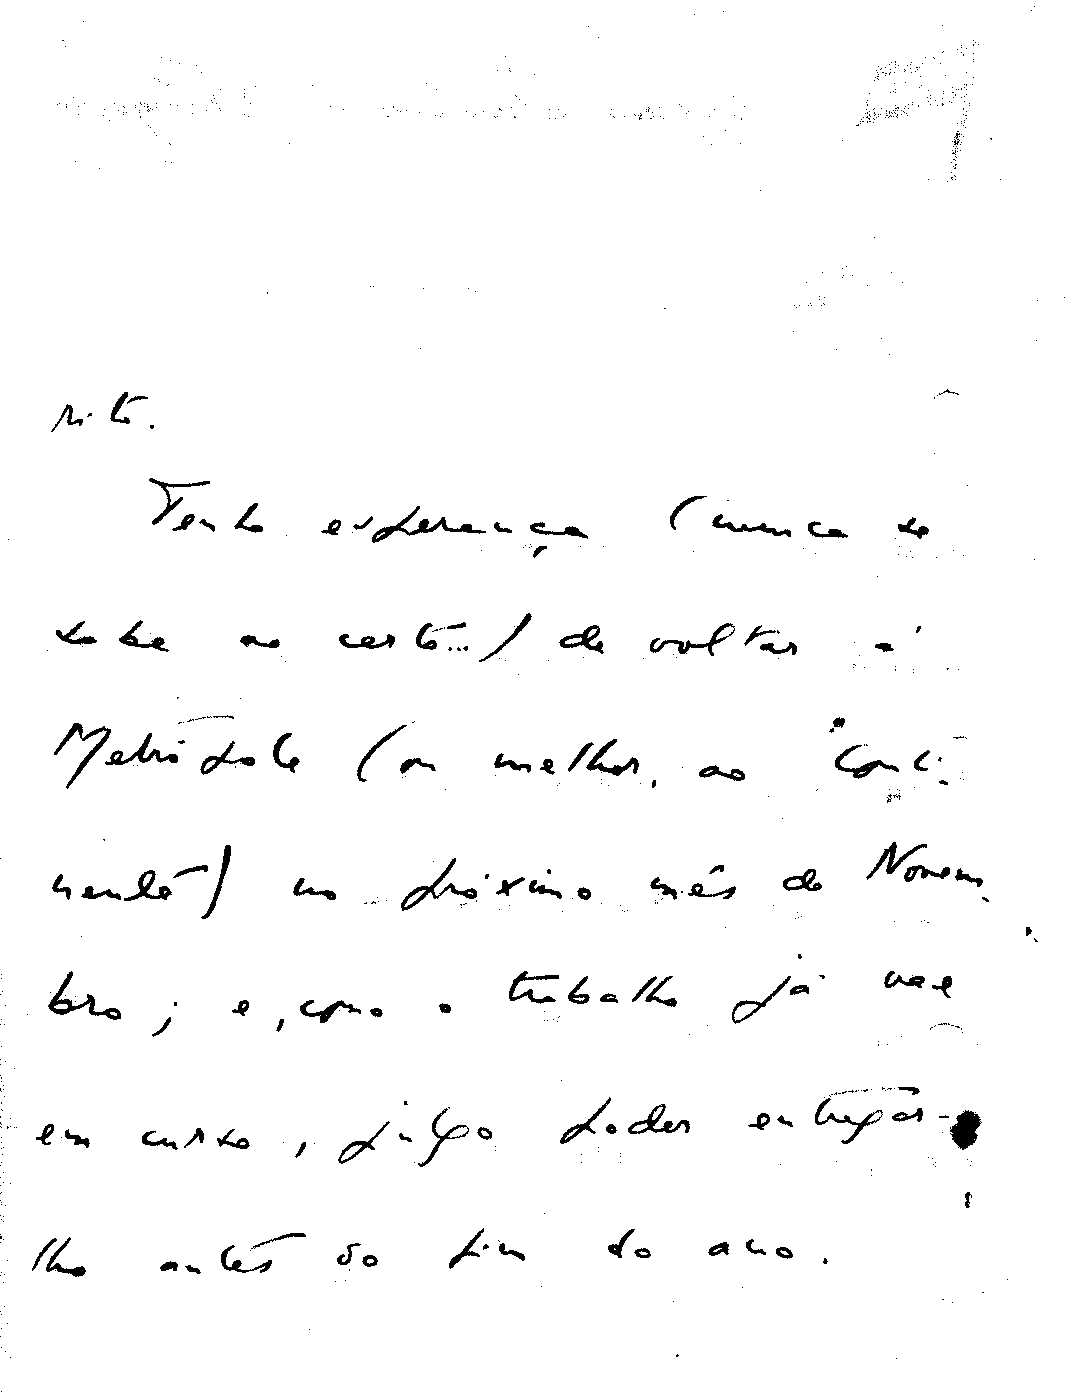 rito.
Tenho esperança (nunca se
sabe ao certo...) de voltar à
Metrópole (ou melhor, ao "Conti-
nente) no próximo mês de Novem-
bro; e, como o trabalho já vae
em curso, julgo poder entregar-
lho antes do fim do ano.